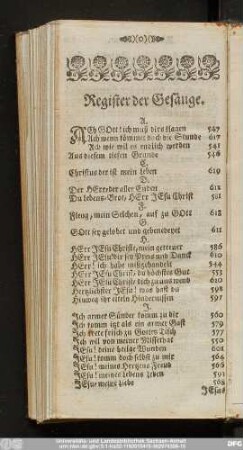 Register der Gesänge.
A.
Ach GOtt! ich muß dirs klagen 547
Ach wenn kömmet doch die Stunde 617
Ach wie will es endlich werden 541
Aus diesem tiefen Grunde 546
C.
Christus der ist mein Leben 619
D.
Der HErr der aller Enden 612
Du Lebens-Brot, HErr JEsu Christ 581
F.
Fleug, mein Seelchen, auf zu GOtt 618
G.
GOtt sey gelobet und gebenedeyet 611
H.
HErr JEsu Christe, mein getreuer 586
HErr JEsu dir sey Preiß und Danck 610
HErr! ich habe mißgehandelt 544
HErr JEsu Christ, du höchstes Gut 553
HErr JEsu Christe dich zu uns wend 610
Hertzliebster JEsu! was hast du 598
Hinweg ihr eitele Hindernissen 597
J.
Ich armer Sünder komm zu dir 560
Ich komm itzt als ein armer Gast 579
Ich trete frölich zu GOttes Tisch 577
Ich will von meiner Missethat 550
JEsu! deine heilge Wunden 601
JEsu! komm doch selbst zu mir 564
JEsu! meines Hertzens Freud 565
JEsu! meiner Lebens Leben 591
JEsu meine Liebe 568
JEsus